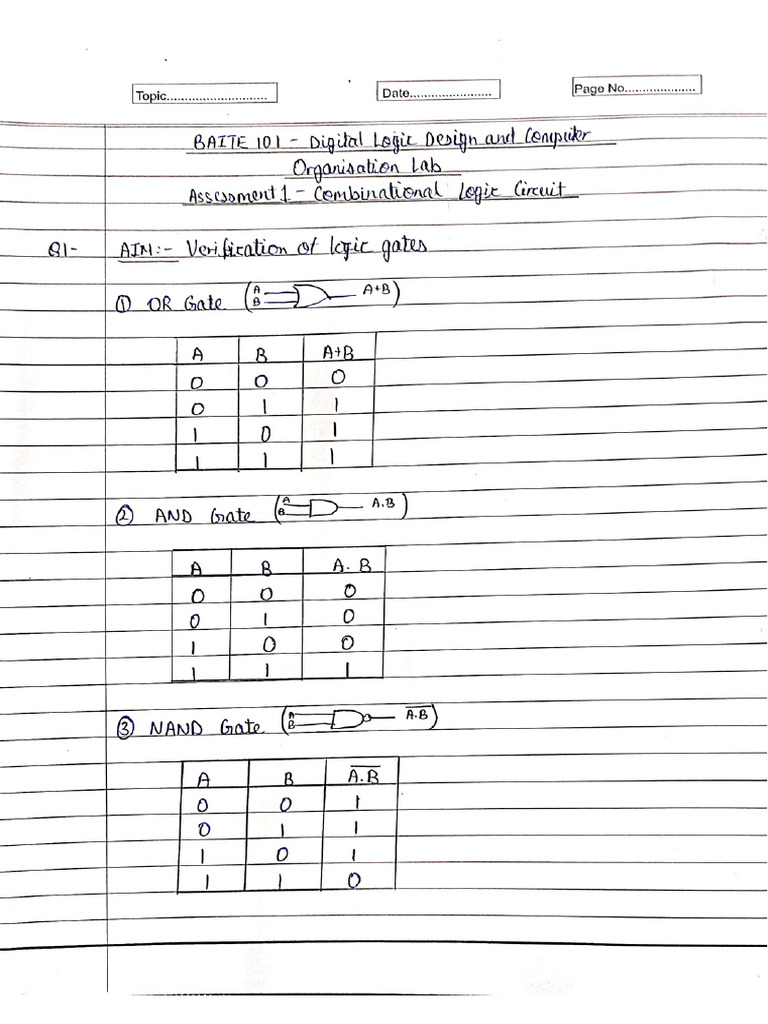 Topic............................ Date....................... Page No....................
BAITE 101 - Digital Logic Design and Computer
Organisation Lab
Assessment 1 - Combinational Logic Circuit
Q1- AIM:- Verification of logic gates
① OR Gate ( A B A+B )
A B A+B
0 0 0
0 1 1
1 0 1
1 1 1
② AND Gate ( A B A.B )
A B A.B
0 0 0
0 1 0
1 0 0
1 1 1
③ NAND Gate ( A B A̅.̅B̅ )
A B A̅.̅B̅
0 0 1
0 1 1
1 0 1
1 1 0